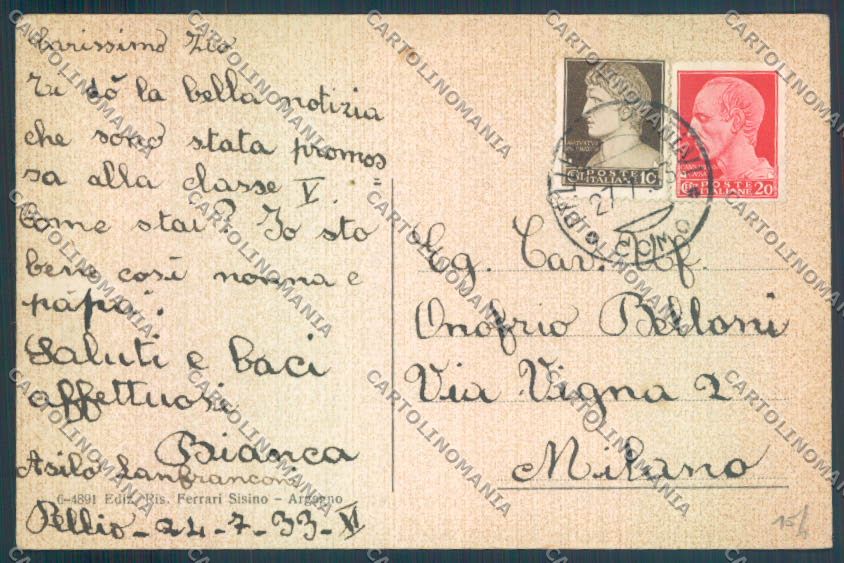 Carissimo Zio
Ti dò la bella notizia
che sono stata promos
sa alla classe V.
Come stai? Io sto
bene così nonna e
papà.
Saluti e baci
affettuosi
Bianca
Asilo Lanfranconi
6-4891 Ediz. Ris. Ferrari Sisino - Argegno
Pellio - 24 - 7 - 33 - XI
POSTE
ITALIANE 10
POSTE
ITALIANE 20
27
COMO
Eg. Cav. Uf.
Onofrio Belloni
Via Vigna 2
Milano
CARTOLINOMANIA